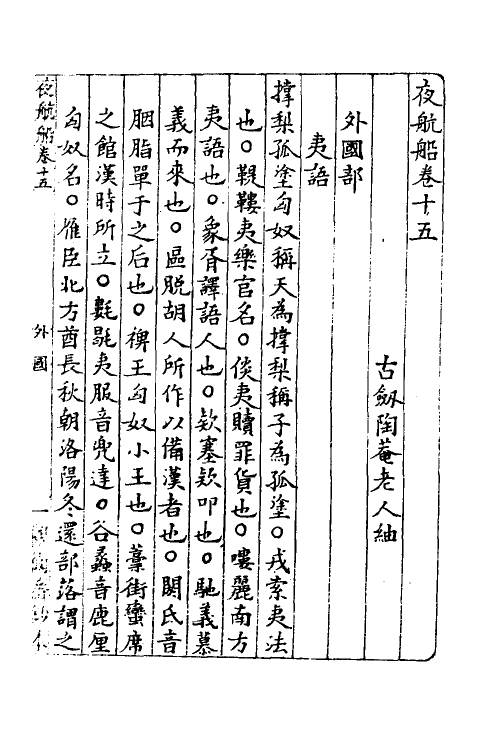 夜航船卷十五
古劔陶菴老人紬
外國部
夷語
撑梨孤塗匈奴稱天為撑梨稱子為孤塗○戎索夷法
也○鞮鞻夷樂官名○倓夷贖罪貨也○嘍麗南方
夷語也○象胥譯語人也○欵塞欵叩也○馳義慕
義而來也○區脫胡人所作以備漢者也○閼氏音
胭脂單于之后也○裨王匈奴小王也○藁街蠻席
之館漢時所立○氀毼夷服音兜達○谷蠡音鹿厘
匈奴名○雁臣北方酋長秋朝洛陽冬還部落謂之
夜航船卷十五
外國
一